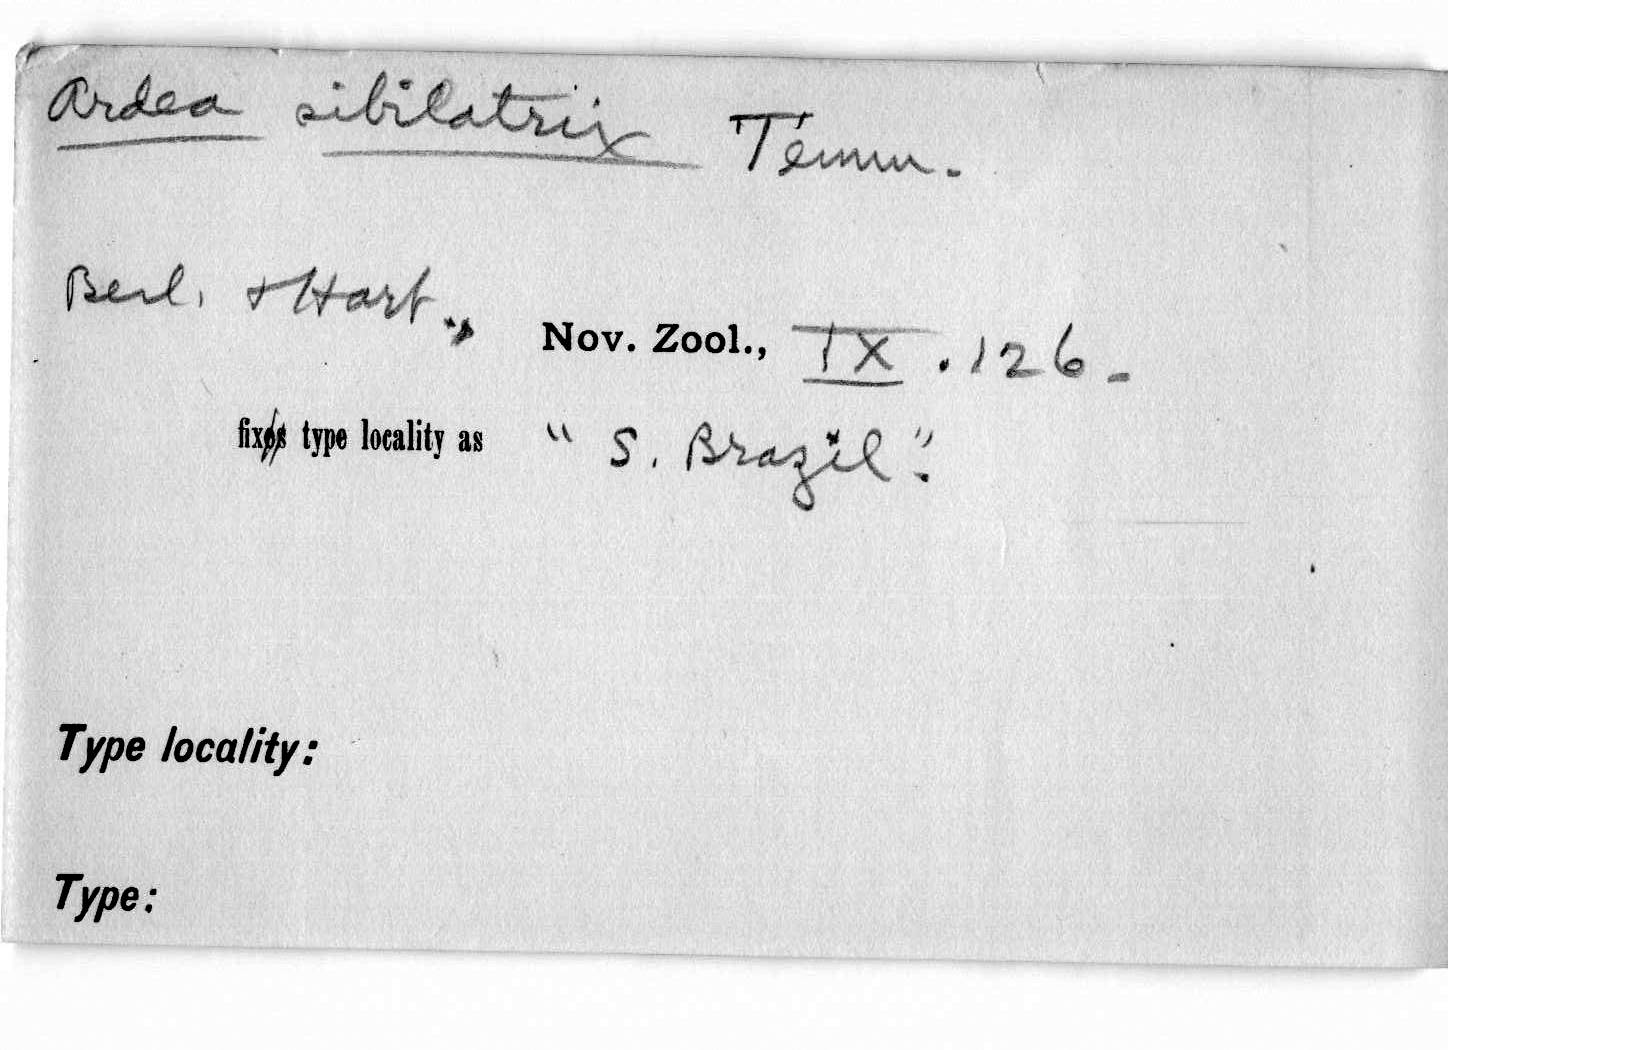 Ardea sibilatrix Temm.
Berl. + Hart., Nov. Zool., IX. 126-
fix type locality as "S. Brazil".
Type locality:
Type: